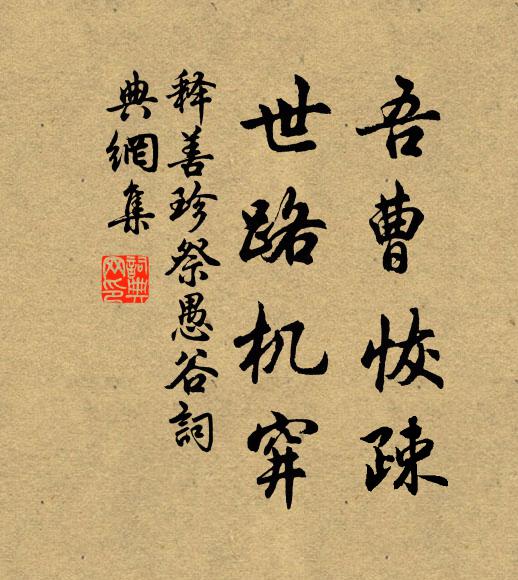 吾曹恢疎
世路机穽
释善珍祭愚谷詞
典網集
詞典
网印